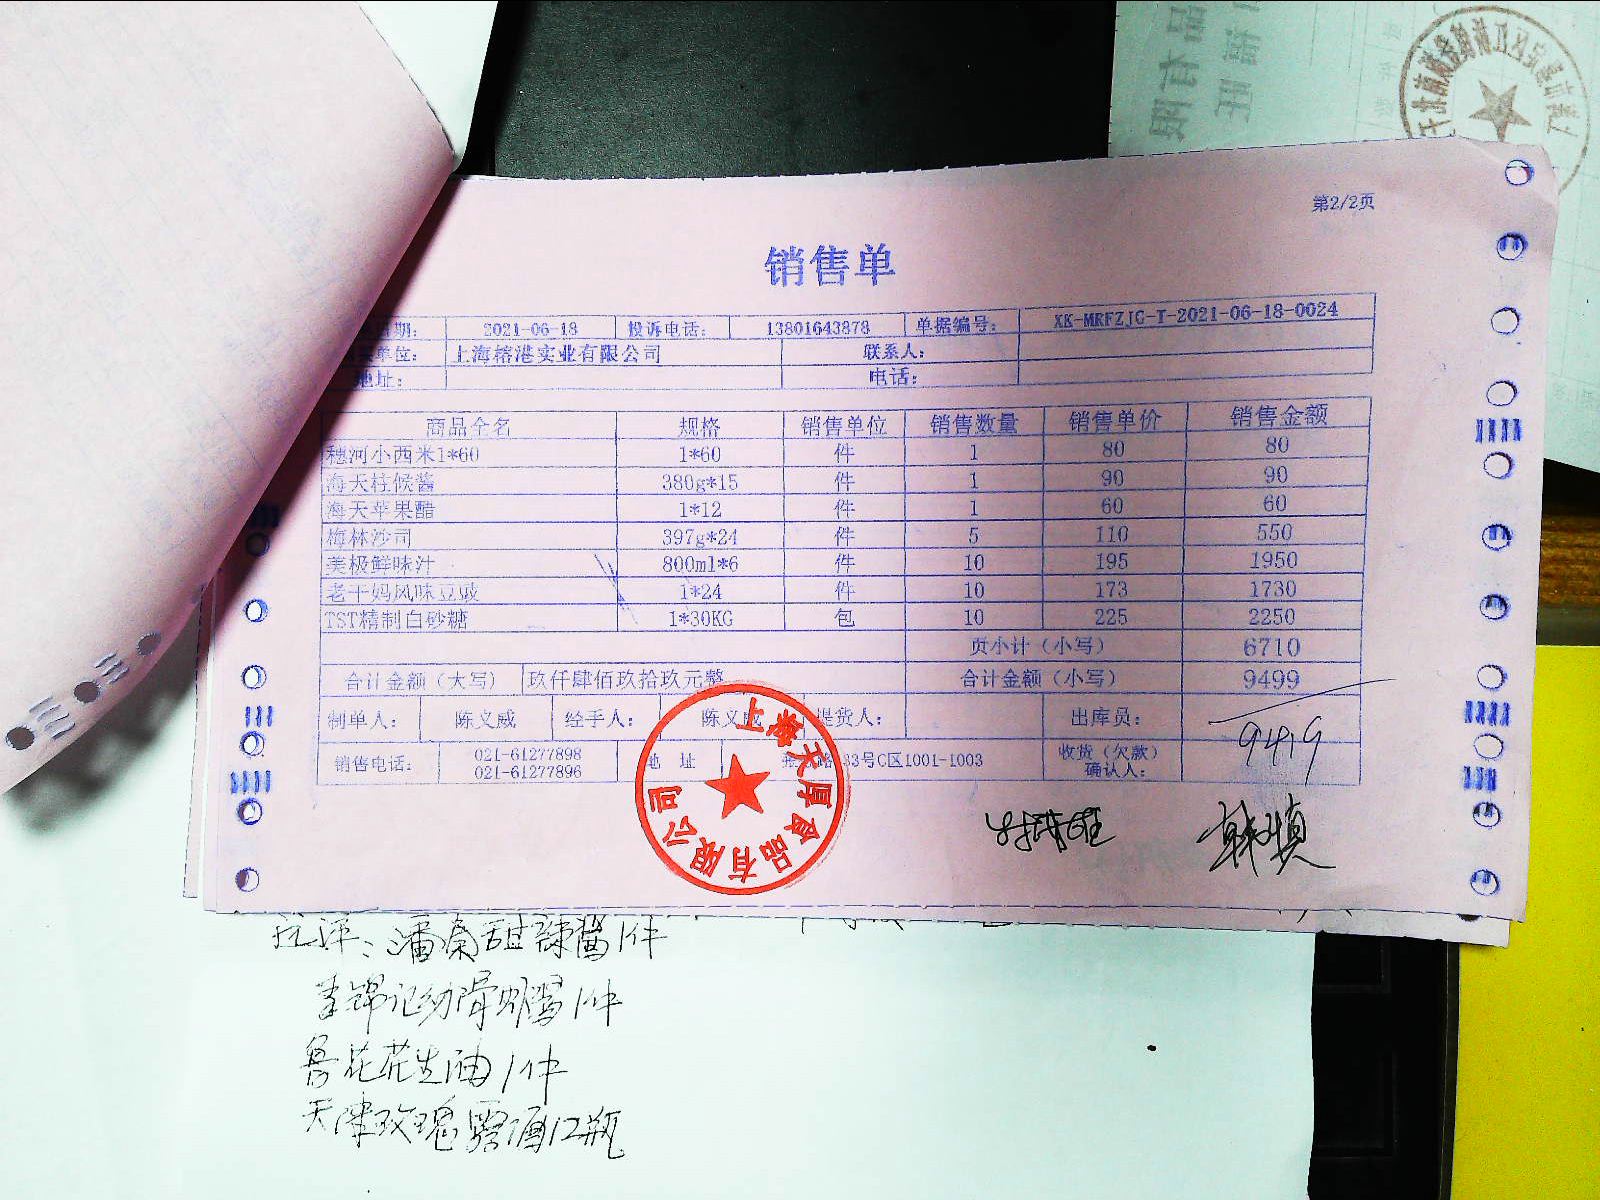 第2/2页
销售单
期: 2021-06-18 投诉电话: 13801643878 单据编号: XK-MRFZJC-T-2021-06-18-0024
单位: 上海榕港实业有限公司 联系人:
地址: 电话:
商品全名 规格 销售单位 销售数量 销售单价 销售金额
穗河小西米1*60 1*60 件 1 80 80
海天柱候酱 380g*15 件 1 90 90
海天苹果醋 1*12 件 1 60 60
梅林沙司 397g*24 件 5 110 550
美极鲜味汁 800ml*6 件 10 195 1950
老干妈风味豆豉 1*24 件 10 173 1730
TST精制白砂糖 1*30KG 包 10 225 2250
页小计（小写） 6710
合计金额（大写） 玖仟肆佰玖拾玖元整 合计金额（小写） 9499
制单人: 陈义威 经手人: 陈义威 提货人: 出库员:
9419
销售电话: 021-61277898 地 址 33号C区1001-1003 收货（欠款）
021-61277896 确认人:
上海天厚食品有限公司
潘泰甜辣酱1件
李锦记幼滑虾酱1件
鲁花花生油1件
天津玫瑰露酒12瓶